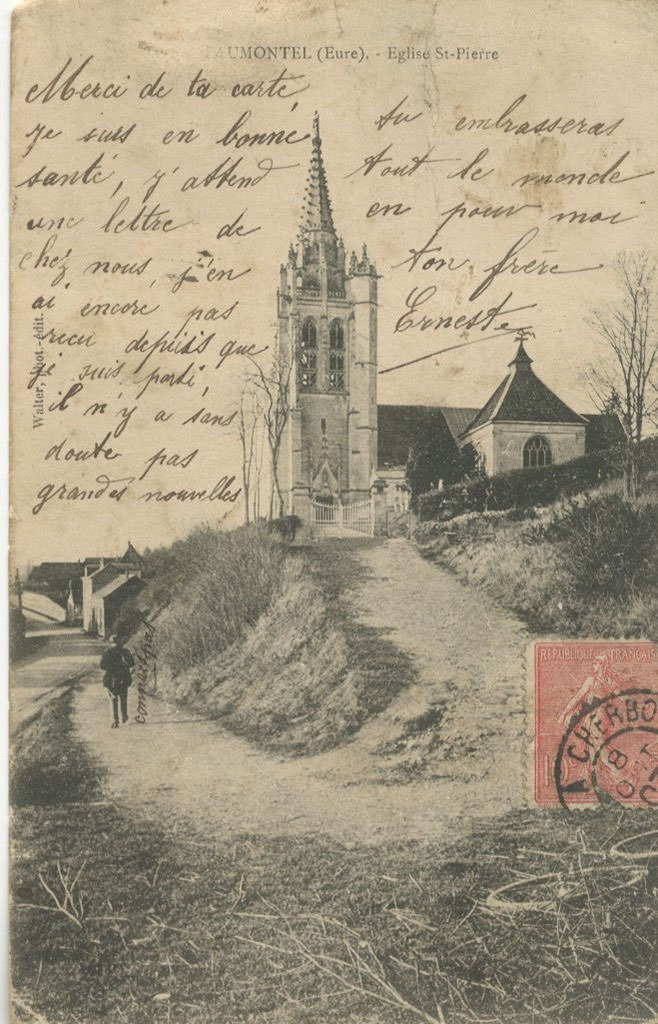 AUMONTEL (Eure). - Eglise St-Pierre
Merci de ta carte,
je suis en bonne
santé, j'attend
une lettre de
chez nous, j'en
ai encore pas
recu depuis que
je suis parti,
il n'y a sans
doute pas
grandes nouvelles
tu embrasseras
tout le monde
en pour moi
ton frère
Ernest
Walter, phot.-édit.
REPUBLIQUE FRANÇAISE
10
CHERBO